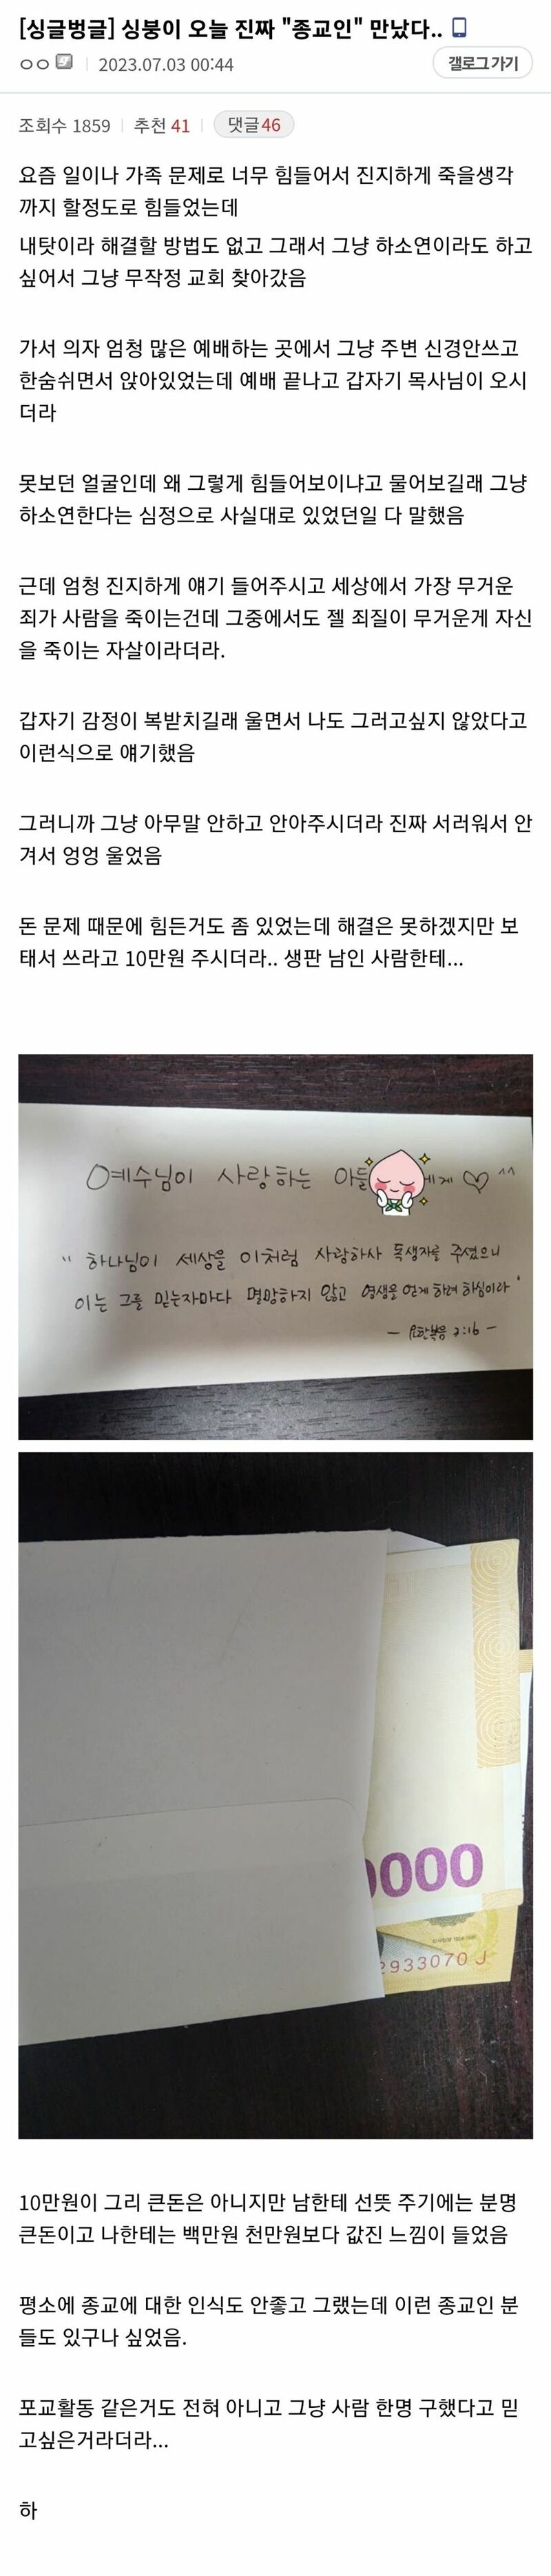 [싱글벙글] 싱붕이 오늘 진짜 "종교인" 만났다..
ㅇㅇ 2023.07.03 00:44
갤로그 가기
조회수 1859 추천 41 댓글 46
요즘 일이나 가족 문제로 너무 힘들어서 진지하게 죽을생각
까지 할정도로 힘들었는데
내탓이라 해결할 방법도 없고 그래서 그냥 하소연이라도 하고
싶어서 그냥 무작정 교회 찾아갔음
가서 의자 엄청 많은 예배하는 곳에서 그냥 주변 신경안쓰고
한숨쉬면서 앉아있었는데 예배 끝나고 갑자기 목사님이 오시
더라
못보던 얼굴인데 왜 그렇게 힘들어보이냐고 물어보길래 그냥
하소연한다는 심정으로 사실대로 있었던일 다 말했음
근데 엄청 진지하게 얘기 들어주시고 세상에서 가장 무거운
죄가 사람을 죽이는건데 그중에서도 젤 죄질이 무거운게 자신
을 죽이는 자살이라더라.
갑자기 감정이 복받치길래 울면서 나도 그러고싶지 않았다고
이런식으로 얘기했음
그러니까 그냥 아무말 안하고 안아주시더라 진짜 서러워서 안
겨서 엉엉 울었음
돈 문제 때문에 힘든거도 좀 있었는데 해결은 못하겠지만 보
태서 쓰라고 10만원 주시더라.. 생판 남인 사람한테...
예수님이 사랑하는 아들 에게 ♡ ^^
" 하나님이 세상을 이처럼 사랑하사 독생자를 주셨으니
이는 그를 믿는자마다 멸망하지 않고 영생을 얻게 하려 하심이라 "
- 요한복음 3:16 -
0000
2933070 J
10만원이 그리 큰돈은 아니지만 남한테 선뜻 주기에는 분명
큰돈이고 나한테는 백만원 천만원보다 값진 느낌이 들었음
평소에 종교에 대한 인식도 안좋고 그랬는데 이런 종교인 분
들도 있구나 싶었음.
포교활동 같은거도 전혀 아니고 그냥 사람 한명 구했다고 믿
고싶은거라더라...
하